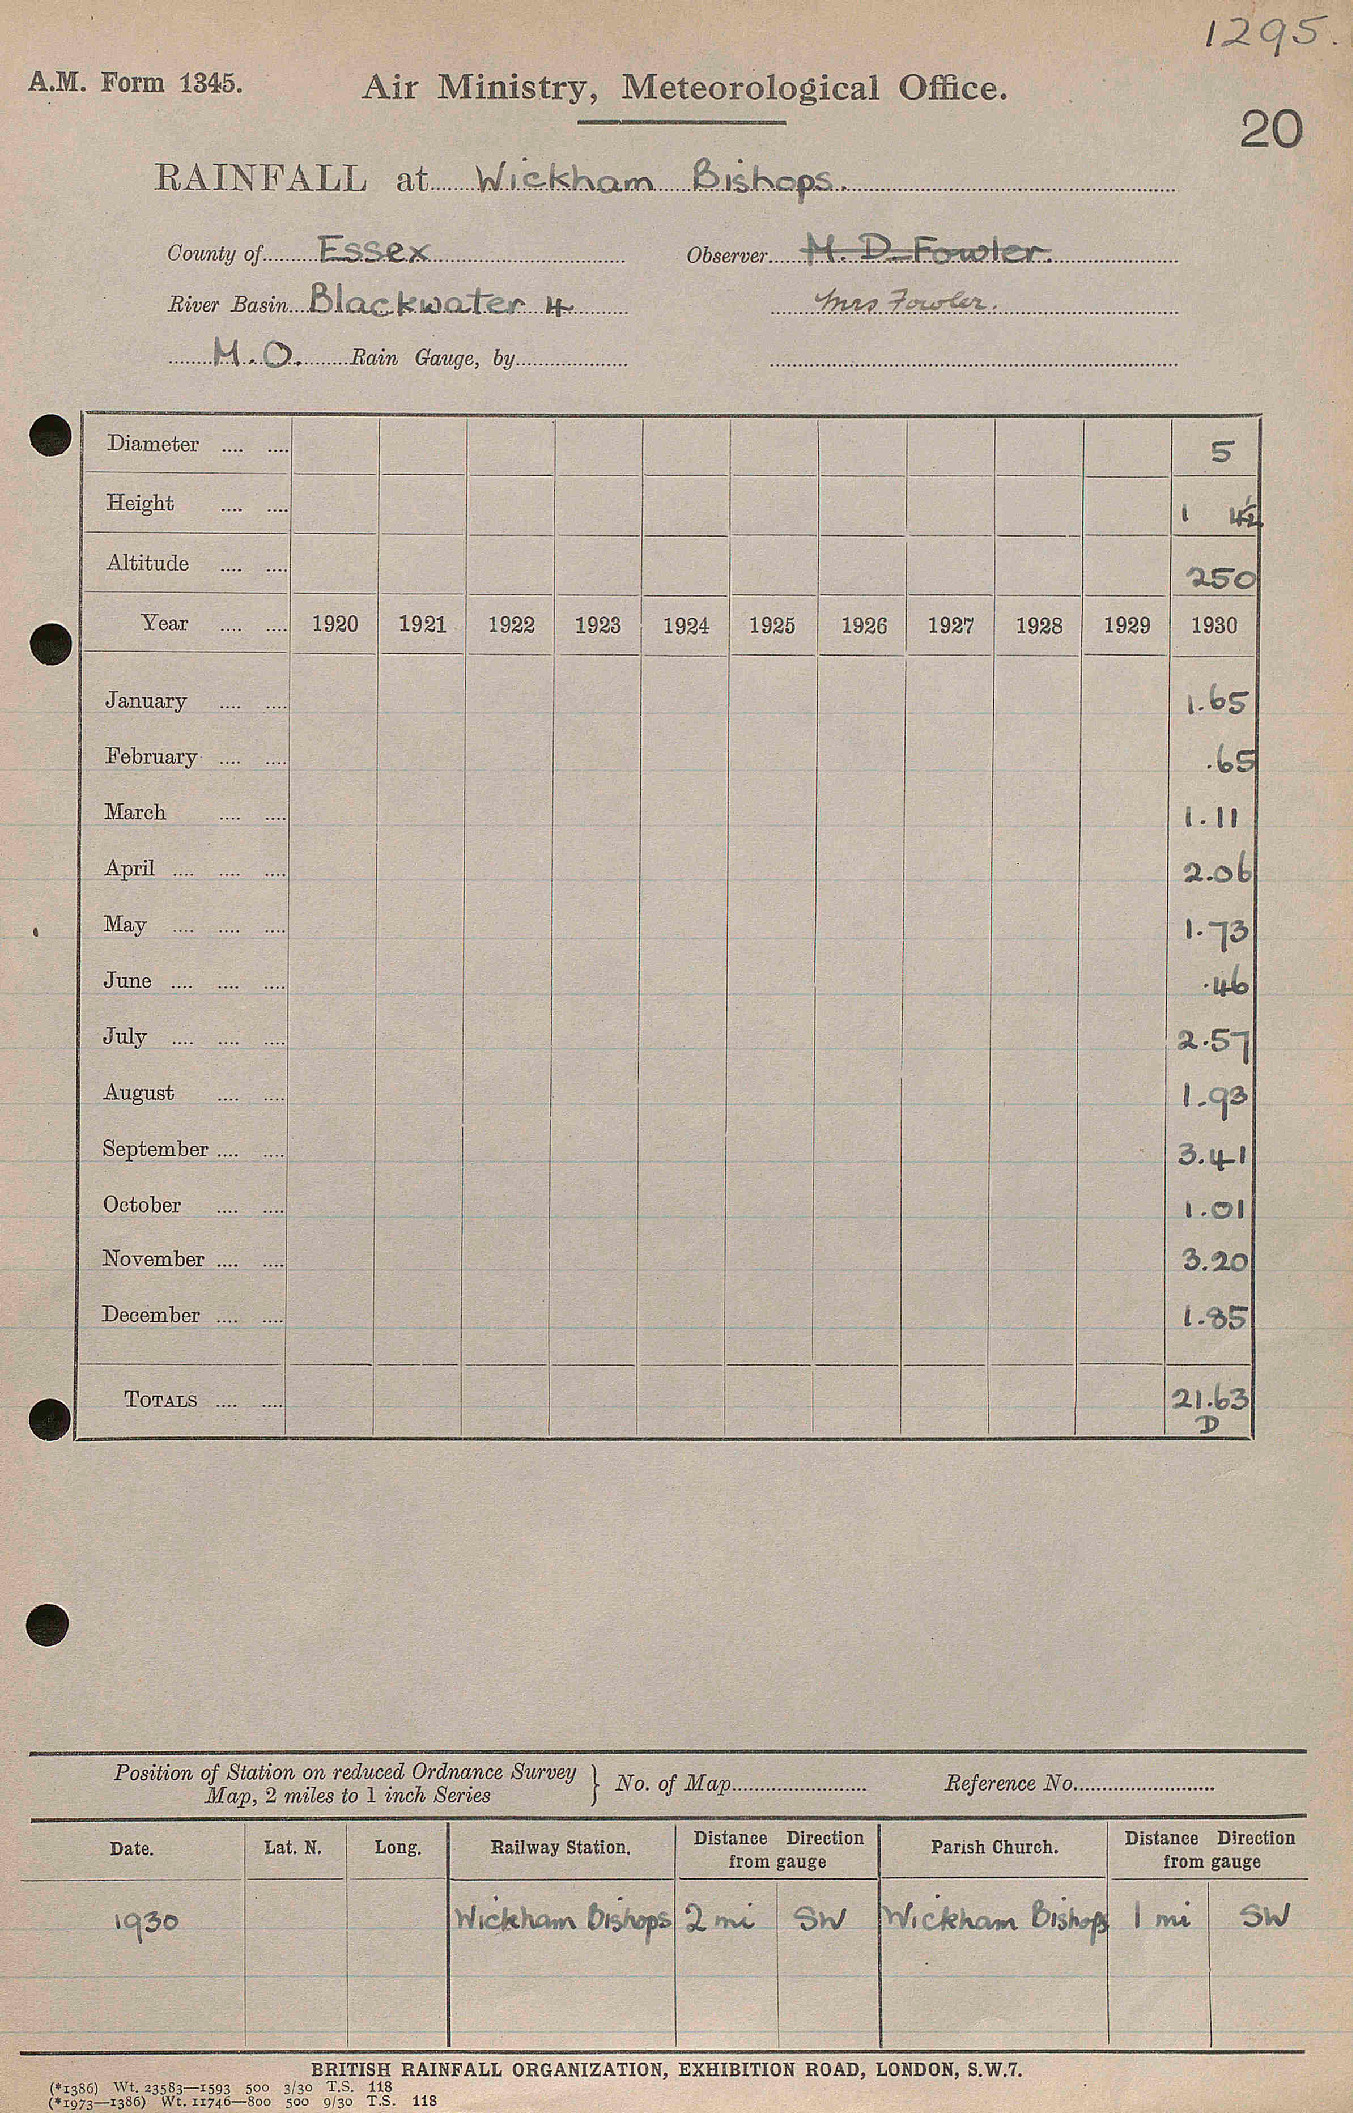 1295.
A.M. Form 1345. Air Ministry, Meteorological Office.
20
RAINFALL at Wickham Bishops.
County of Essex Observer M. D. Fowler.
River Basin Blackwater 4 Mrs Fowler.
M.O. Rain Gauge, by
Diameter .... .... 5
Height .... .... 1 4½
Altitude .... .... 250
Year .... .... 1920 1921 1922 1923 1924 1925 1926 1927 1928 1929 1930
January .... .... 1.65
February .... .... .65
March .... .... 1.11
April .... .... .... 2.06
May .... .... .... 1.73
June .... .... .... .46
July .... .... .... 2.57
August .... .... 1.93
September .... .... 3.41
October .... .... 1.01
November .... .... 3.20
December .... .... 1.85
TOTALS .... .... 21.63
D
Position of Station on reduced Ordnance Survey
Map, 2 miles to 1 inch Series } No. of Map Reference No.
Date. Lat. N. Long. Railway Station. Distance Direction from gauge Parish Church. Distance Direction from gauge
1930 Wickham Bishops 2 mi SW Wickham Bishops 1 mi SW
BRITISH RAINFALL ORGANIZATION, EXHIBITION ROAD, LONDON, S.W.7.
(*1386) Wt. 23583—1593 500 3/30 T.S. 118
(*1973—1386) Wt. 11746—800 500 9/30 T.S. 118